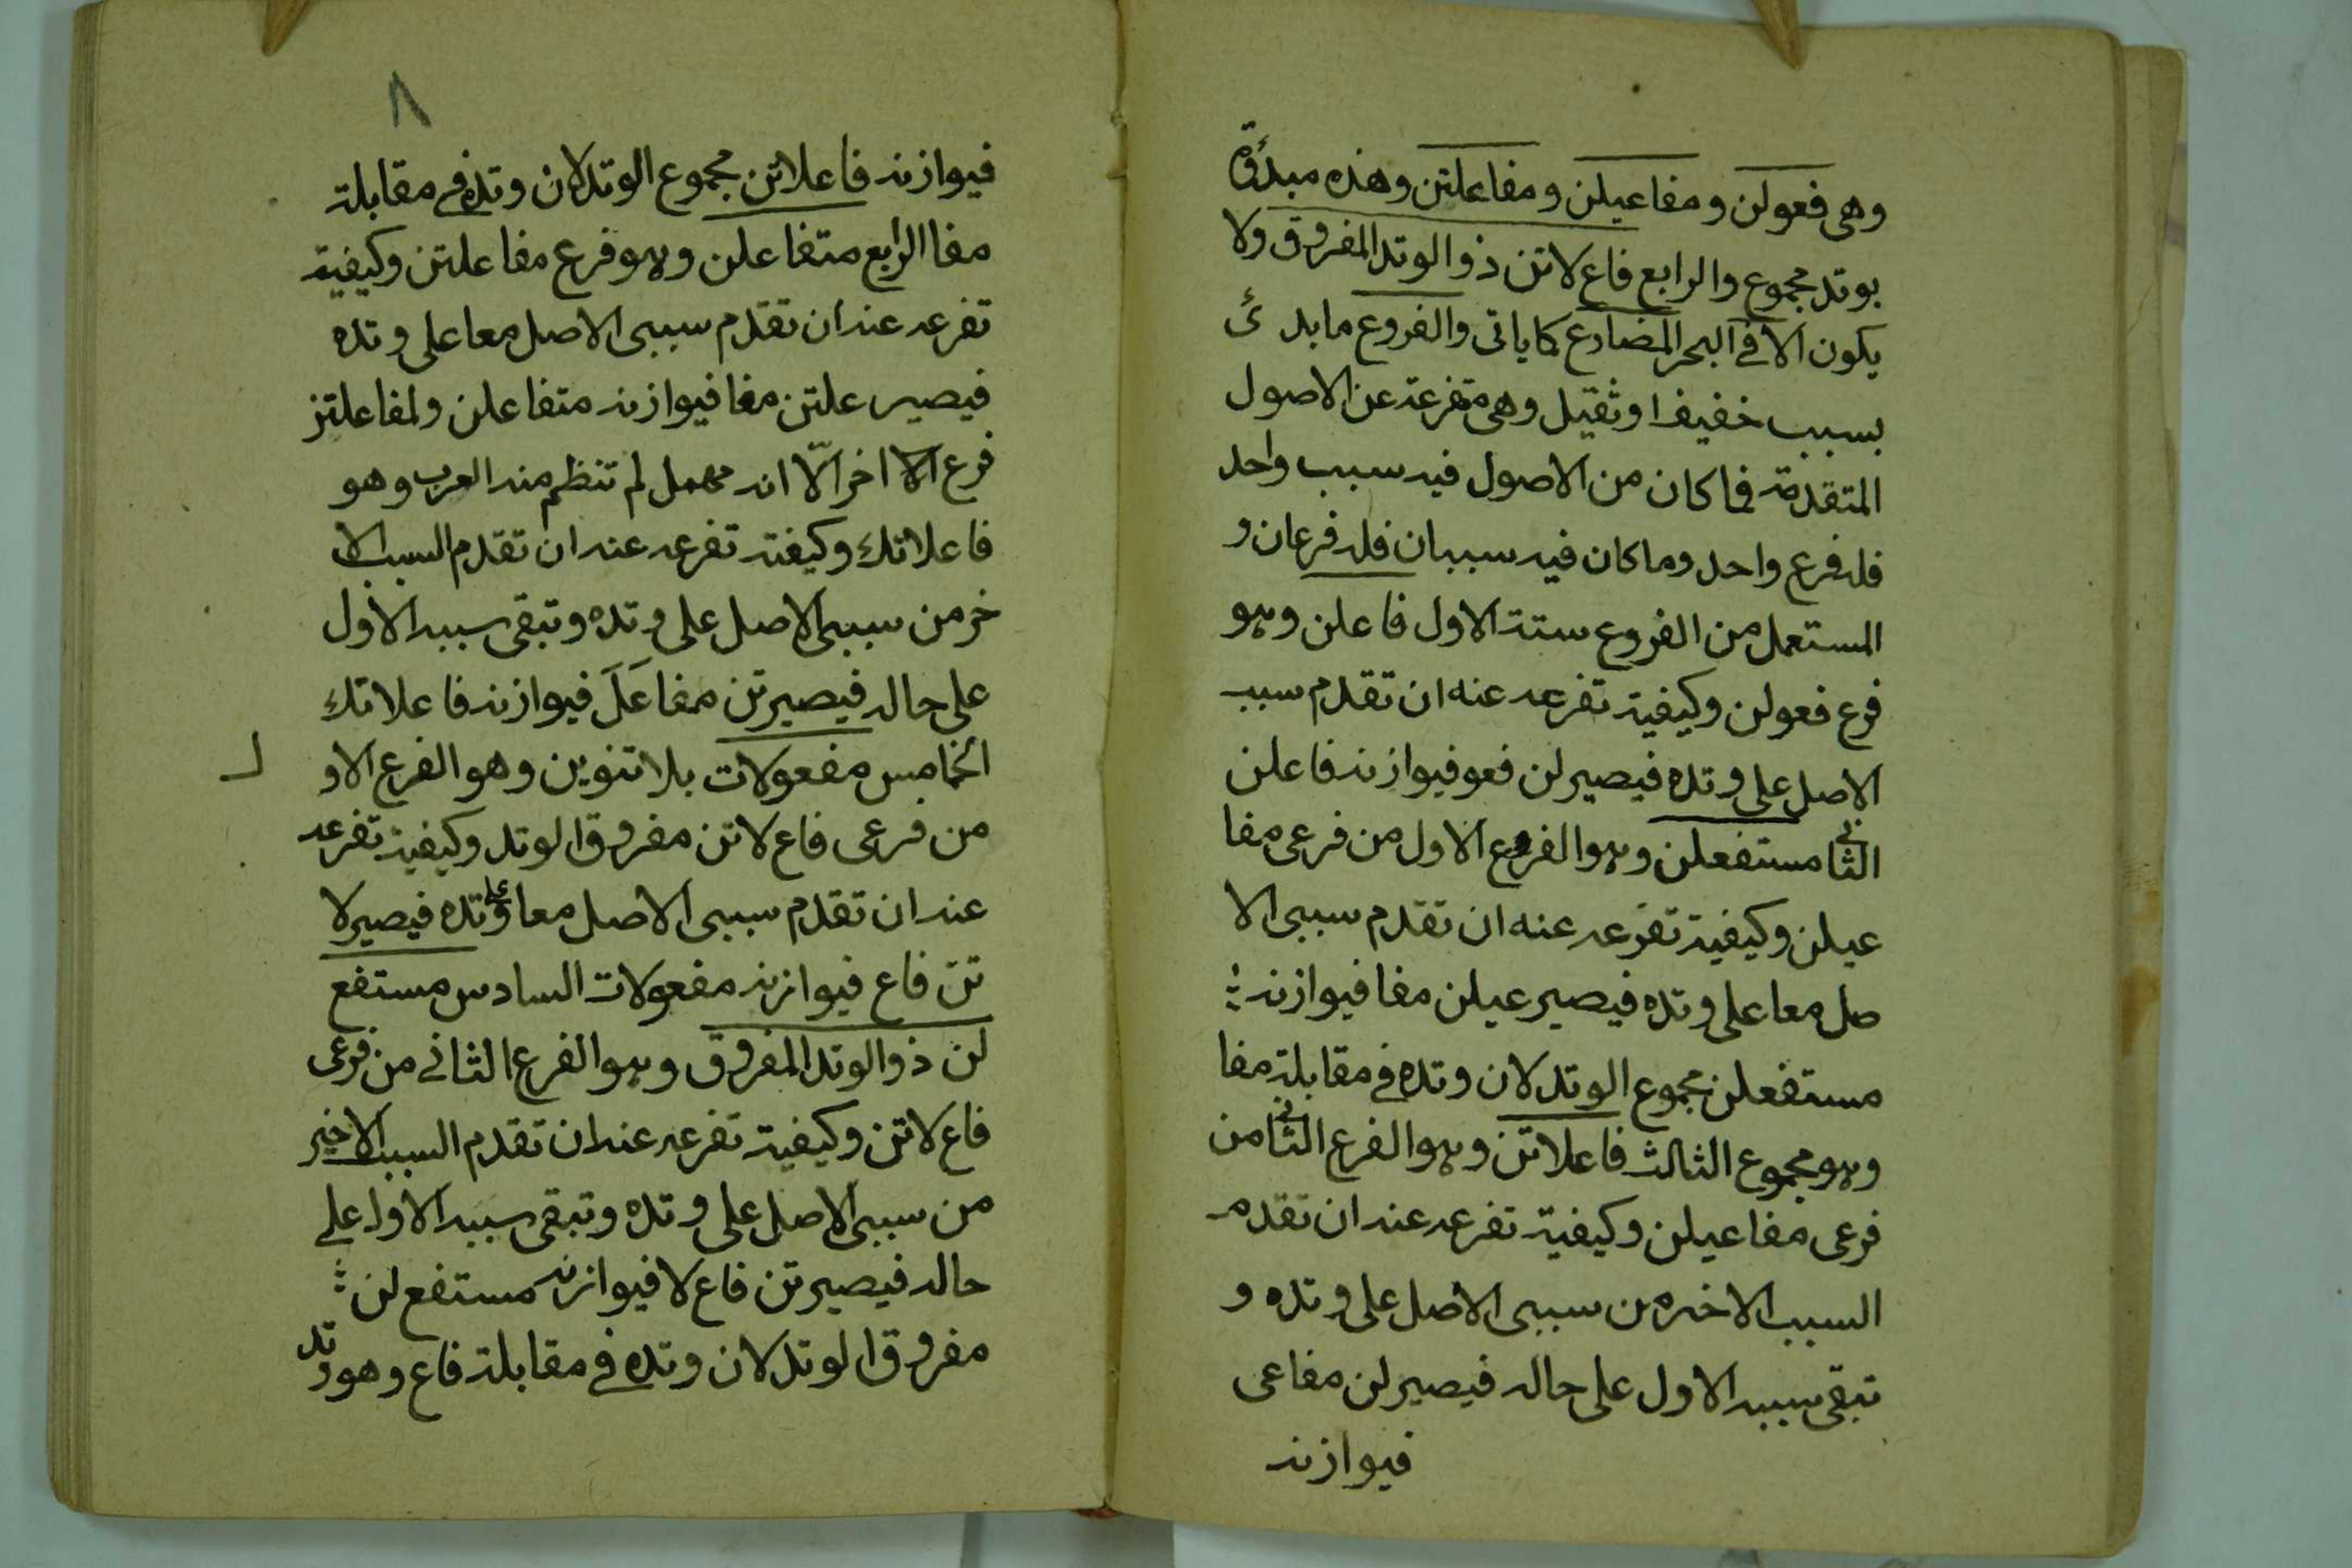 وهى فعولن ومفاعيلن ومفاعلتن وهذه مبدؤة
بوتد مجموع والرابع فاع لاتن ذو الوتد المفروق ولا
يكون الا فى البحر المضارع كما ياتى والفروع ما بدئ
بسبب خفيف او ثقيل وهى متفرعة عن الاصول
المتقدمة فما كان من الاصول فيه سبب واحد
فله فرع واحد وما كان فيه سببان فله فرعان و
المستعمل من الفروع ستة الاول فاعلن وهو
فرع فعولن وكيفية تفرعه عنه ان تقدم سبب
الاصل على وتده فيصير لن فعو فيوازنه فاعلن
الثانى مستفعلن وهو الفرع الاول من فرعى مفا
عيلن وكيفية تفرعه عنه ان تقدم سببى الا
صل معا على وتده فيصير عيلن مفا فيوازنه
مستفعلن مجموع الوتد لان وتده فى مقابلة مفا
وهو مجموع الثالث فاعلاتن وهو الفرع الثانى من
فرعى مفاعيلن وكيفية تفرعه عنه ان تقدم
السبب الاخير من سببى الاصل على وتده و
تبقى سببه الاول على حاله فيصير لن مفاعى
فيوازنه
٨
فيوازنه فاعلاتن مجموع الوتد لان وتده فى مقابلة
مفا الرابع متفاعلن وهو فرع مفاعلتن وكيفية
تفرعه عنه ان تقدم سببى الاصل معا على وتده
فيصير علتن مفا فيوازنه متفاعلن ولمفاعلتن
فرع الا اخر الّا انه مهمل لم تنظم منه العرب وهو
فاعلاتك وكيفته تفرعه عنه ان تقدم السبب الا
خر من سببى الاصل على وتده وتبقى سببه الاول
على حاله فيصير تن مفاعَلَ فيوازنه فاعلاتك
الخامس مفعولات بلا تنوين وهو الفرع الاو
ل
من فرعى فاع لاتن مفروق الوتد وكيفية تفرعه
عنه ان تقدم سببى الاصل معا على وتده فيصير لا
تن فاع فيوازنه مفعولات السادس مستفع
لن ذو الوتد المفروق وهو الفرع الثانى من فرعى
فاع لاتن وكيفية تفرعه عنه ان تقدم السبب الاخير
من سببى الاصل على وتده وتبقى سببه الاول على
حاله فيصير تن فاع لا فيوازنه مستفع لن
مفروق الوتد لان وتده فى مقابلة فاع وهو وتد